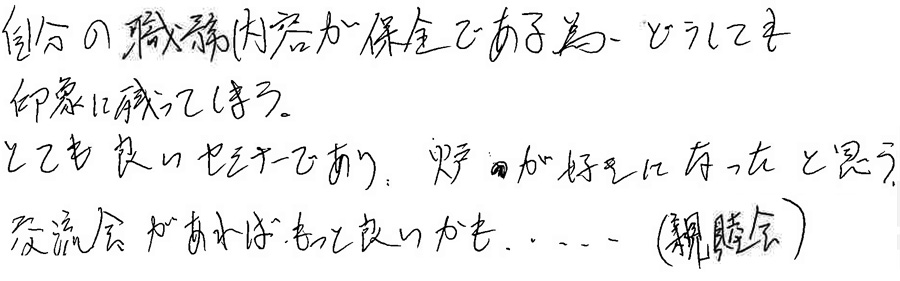 自分の職務内容が保全である為、どうしても
印象に残ってしまう。
とても良いセミナーであり、炉が好きになったと思う。
交流会があればもっと良いかも......(親睦会)